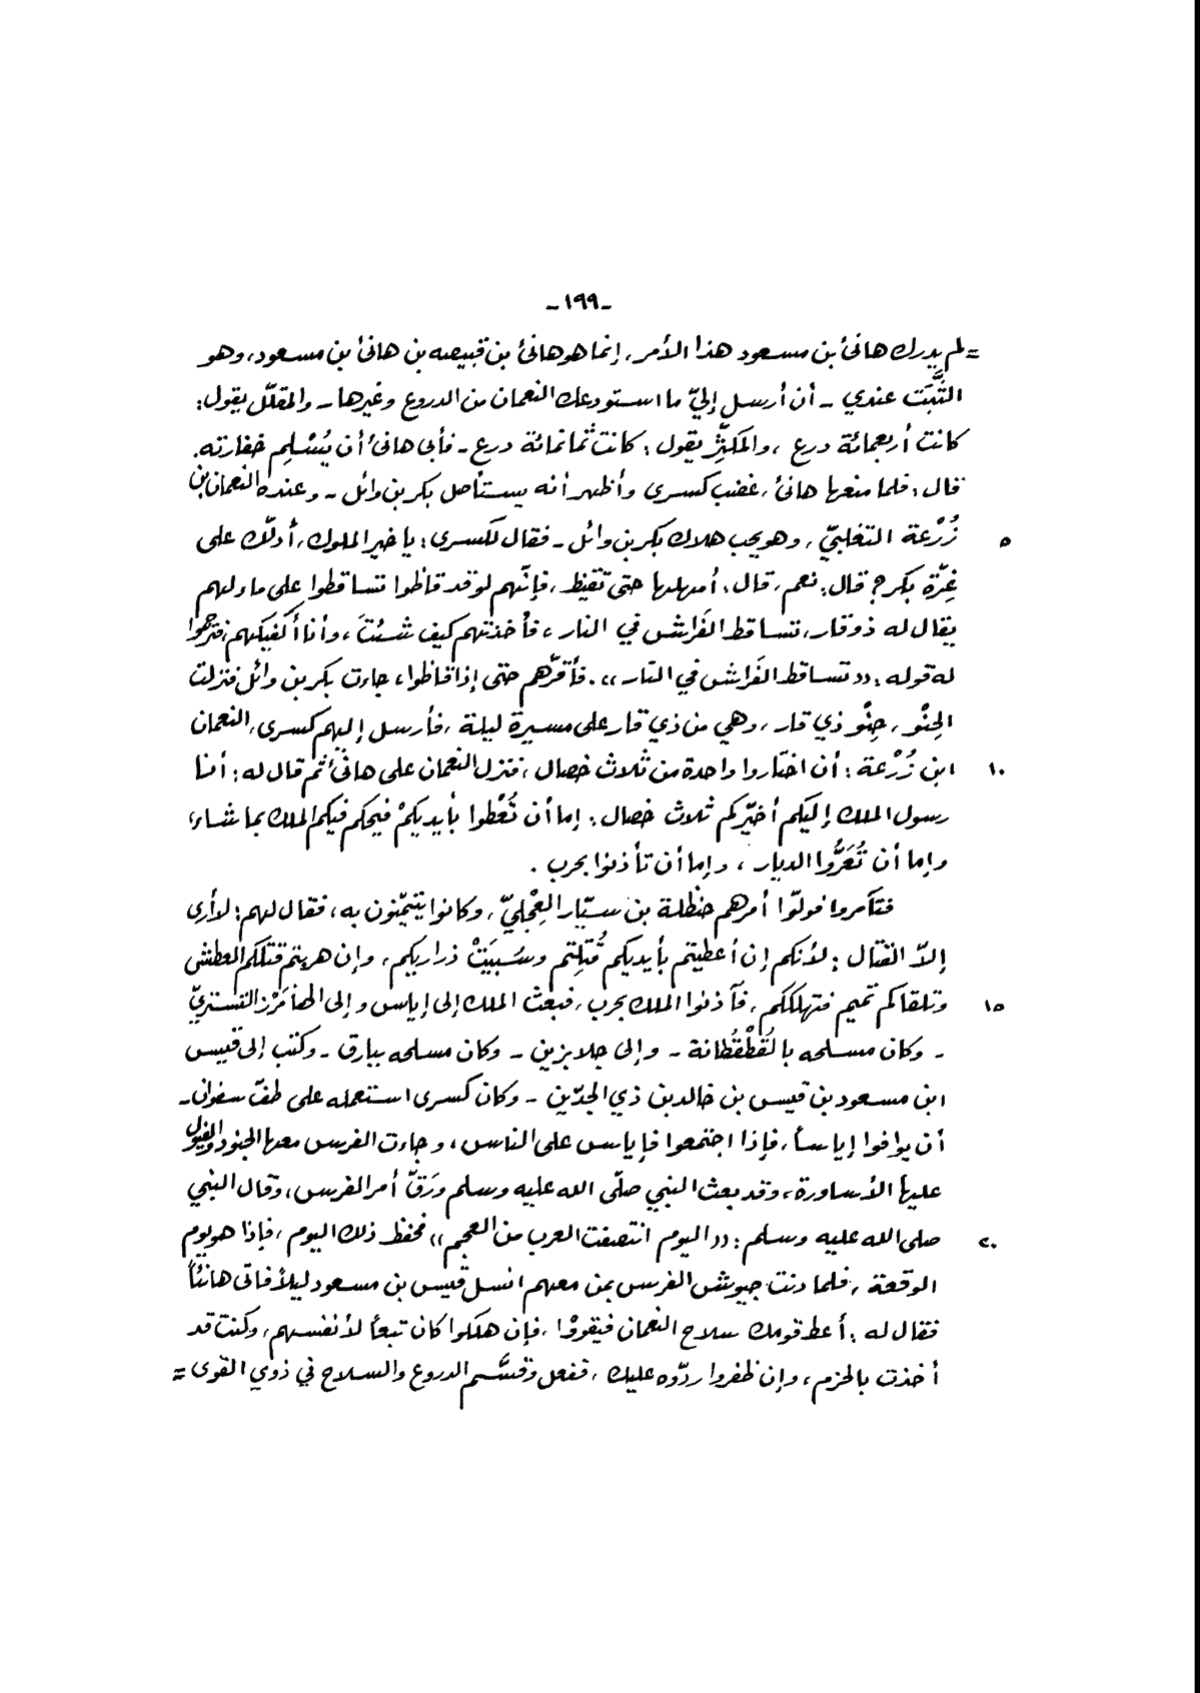 -١٩٩-
= لم يدرك هانئ بن مسعود هذا الأمر، إنما هو هانئ بن قبيصه بن هانئ بن مسعود، وهو
الثَّبَت عندي - أن أرسل إليّ ما استودعك النعمان من الدروع وغيرها - والمقلّل يقول:
كانت أربعمائة درع، والمكثِّر يقول: كانت ثمانمائة درع - فأبى هانئ أن يُسْلِم خفارته.
قال: فلما منعها هانئ، غضب كسرى وأظهر أنه يستأصل بكر بن وائل - وعنده النعمان بن
٥ زُرْعة التغلبيّ، وهو يحب هلاك بكر بن وائل - فقال لكسرى: يا خير الملوك، أدلّك على
غِرّة بكر؟ قال: نعم، قال: أمهلها حتى تقيظ، فإنّهم لو قد قاظوا تساقطوا على ماء لهم
يقال له ذو قار، تساقط الفَراش في النار، فأخذتهم كيف شئتَ، وأنا أكفيكهم، فترجموا
له قوله: «تساقط الفَراش في النار»، فأقرّهم حتى إذا قاظوا، جاءت بكر بن وائل فنزلت
الحِنْو، حِنْو ذي قار، وهي من ذي قار على مسيرة ليلة، فأرسل إليهم كسرى، النعمان
١٠ ابن زُرْعة: أن اختاروا واحدة من ثلاث خصال، فنزل النعمان على هانئ ثم قال له: أنا
رسول الملك إليكم أخيّركم ثلاث خصال: إما أن تُعْطوا بأيديكمْ فيحكم فيكم الملك بما شاء،
وإما أن تُعَرُّوا الديار، وإما أن تأذنوا بحرب.
فتآمروا فولّوا أمرهم حنظلة بن سيّار العِجْليّ، وكانوا يتيمّنون به، فقال لهم: لا أرى
إلاّ القتال: لأنكم إن أعطيتم بأيديكم قُتِلتم وسُبيَتْ ذراريكم، وإن هربتم قتلكم العطش
١٥ وتلقاكم تميم فتهلككم، فآذنوا الملك بحرب، فبعث الملك إلى إياس وإلى الهامَرْز التستريّ
- وكان مسلحه بالقُطْقُطانة - وإلى جلابزين - وكان مسلحه ببارق - وكتب إلى قيس
ابن مسعود بن قيس بن خالد بن ذي الجدّين - وكان كسرى استعمله على طفّ سفوان -
أن يوافوا إياساً، فإذا اجتمعوا فإياس على الناس، وجاءت الفرس معها الجنود والفيول
عليها الأساورة، وقد بعث النبي صلّى الله عليه وسلم ورَقّ أمر الفرس، وقال النبي
٢٠ صلى الله عليه وسلم: «اليوم انتصفت العرب من العجم» فحفظ ذلك اليوم، فإذا هو يوم
الوقعة، فلما دنت جيوش الفرس بمن معهم انسل قيس بن مسعود ليلاً فأتى هانئاً
فقال له: أعط قومك سلاح النعمان فيقووا، فإن هلكوا كان تبعاً لأنفسهم، وكنت قد
أخذت بالحزم، وإن ظفروا ردّوه عليك، ففعل وقسَّم الدروع والسلاح في ذوي القوى =